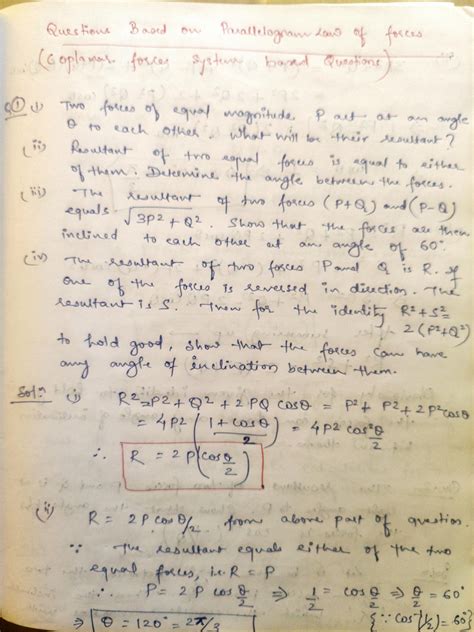 Questions Based on Parallelogram Law of forces
(Coplanar forces System based Questions)
Q.① (i) Two forces of equal magnitude P act at an angle
θ to each other. What will be their resultant?
(ii) Resultant of two equal forces is equal to either
of them. Determine the angle between the forces.
(iii) The resultant of two forces (P+Q) and (P-Q)
equals √3P2+Q2. Show that the forces are then
inclined to each other at an angle of 60°
(iv) The resultant of two forces P and Q is R. If
one of the forces is reversed in direction. The
resultant is S. Then for the identity R²+S²=
2(P²+Q²)
to hold good, show that the forces can have
any angle of inclination between them.
Sol:- (i) R²=P2+Q²+2PQ cosθ = P²+P²+2P²cosθ
= 4P2 (1+cosθ/2) = 4P2 cos²θ/2
∴ R = 2P(cosθ/2)
(ii) R = 2P cosθ/2 from above part of question
∵ The resultant equals either of the two
equal forces, i.e. R = P
∴ P = 2P cosθ/2 ⇒ 1/2 = cosθ/2 ⇒ θ/2 = 60°
⇒ θ = 120° = 2π/3 {∵ cos⁻¹(1/2) = 60°}